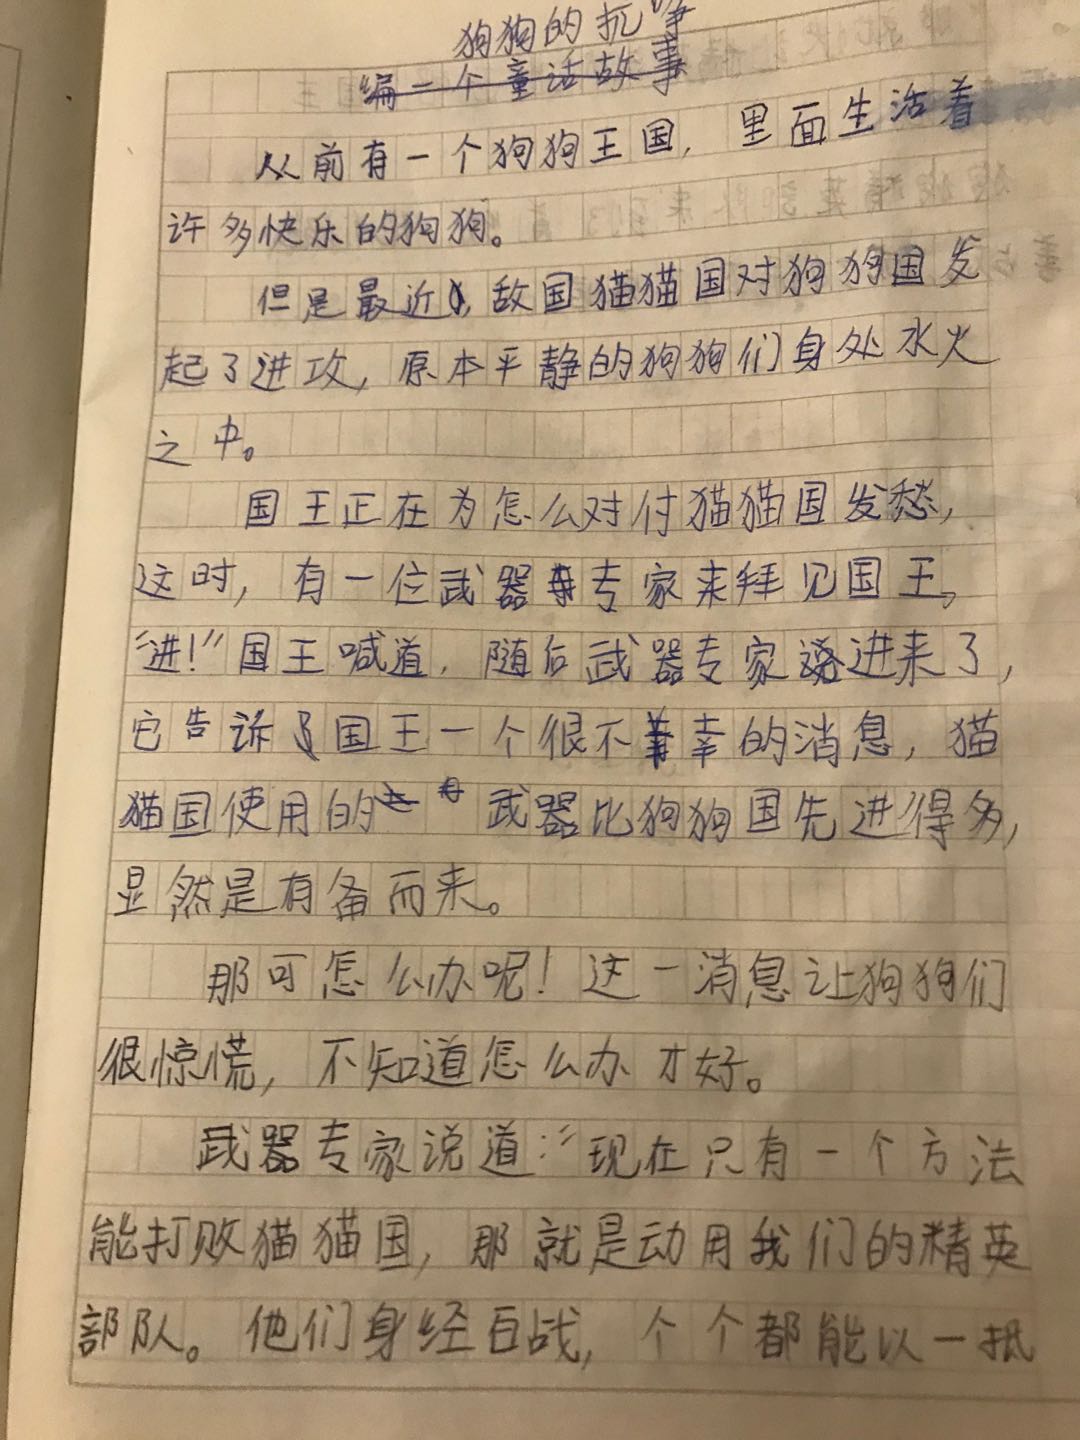 狗狗的抗争
编一个童话故事
从前有一个狗狗王国，里面生活着
许多快乐的狗狗。
但是最近，敌国猫猫国对狗狗国发
起了进攻，原本平静的狗狗们身处水火
之中。
国王正在为怎么对付猫猫国发愁，
这时，有一位武器专家来拜见国王。
“进！”国王喊道，随后武器专家进来了，
它告诉了国王一个很不幸的消息，猫
猫国使用的武器比狗狗国先进得多，
显然是有备而来。
那可怎么办呢！这一消息让狗狗们
很惊慌，不知道怎么办才好。
武器专家说道：“现在只有一个方法
能打败猫猫国，那就是动用我们的精英
部队。他们身经百战，个个都能以一抵